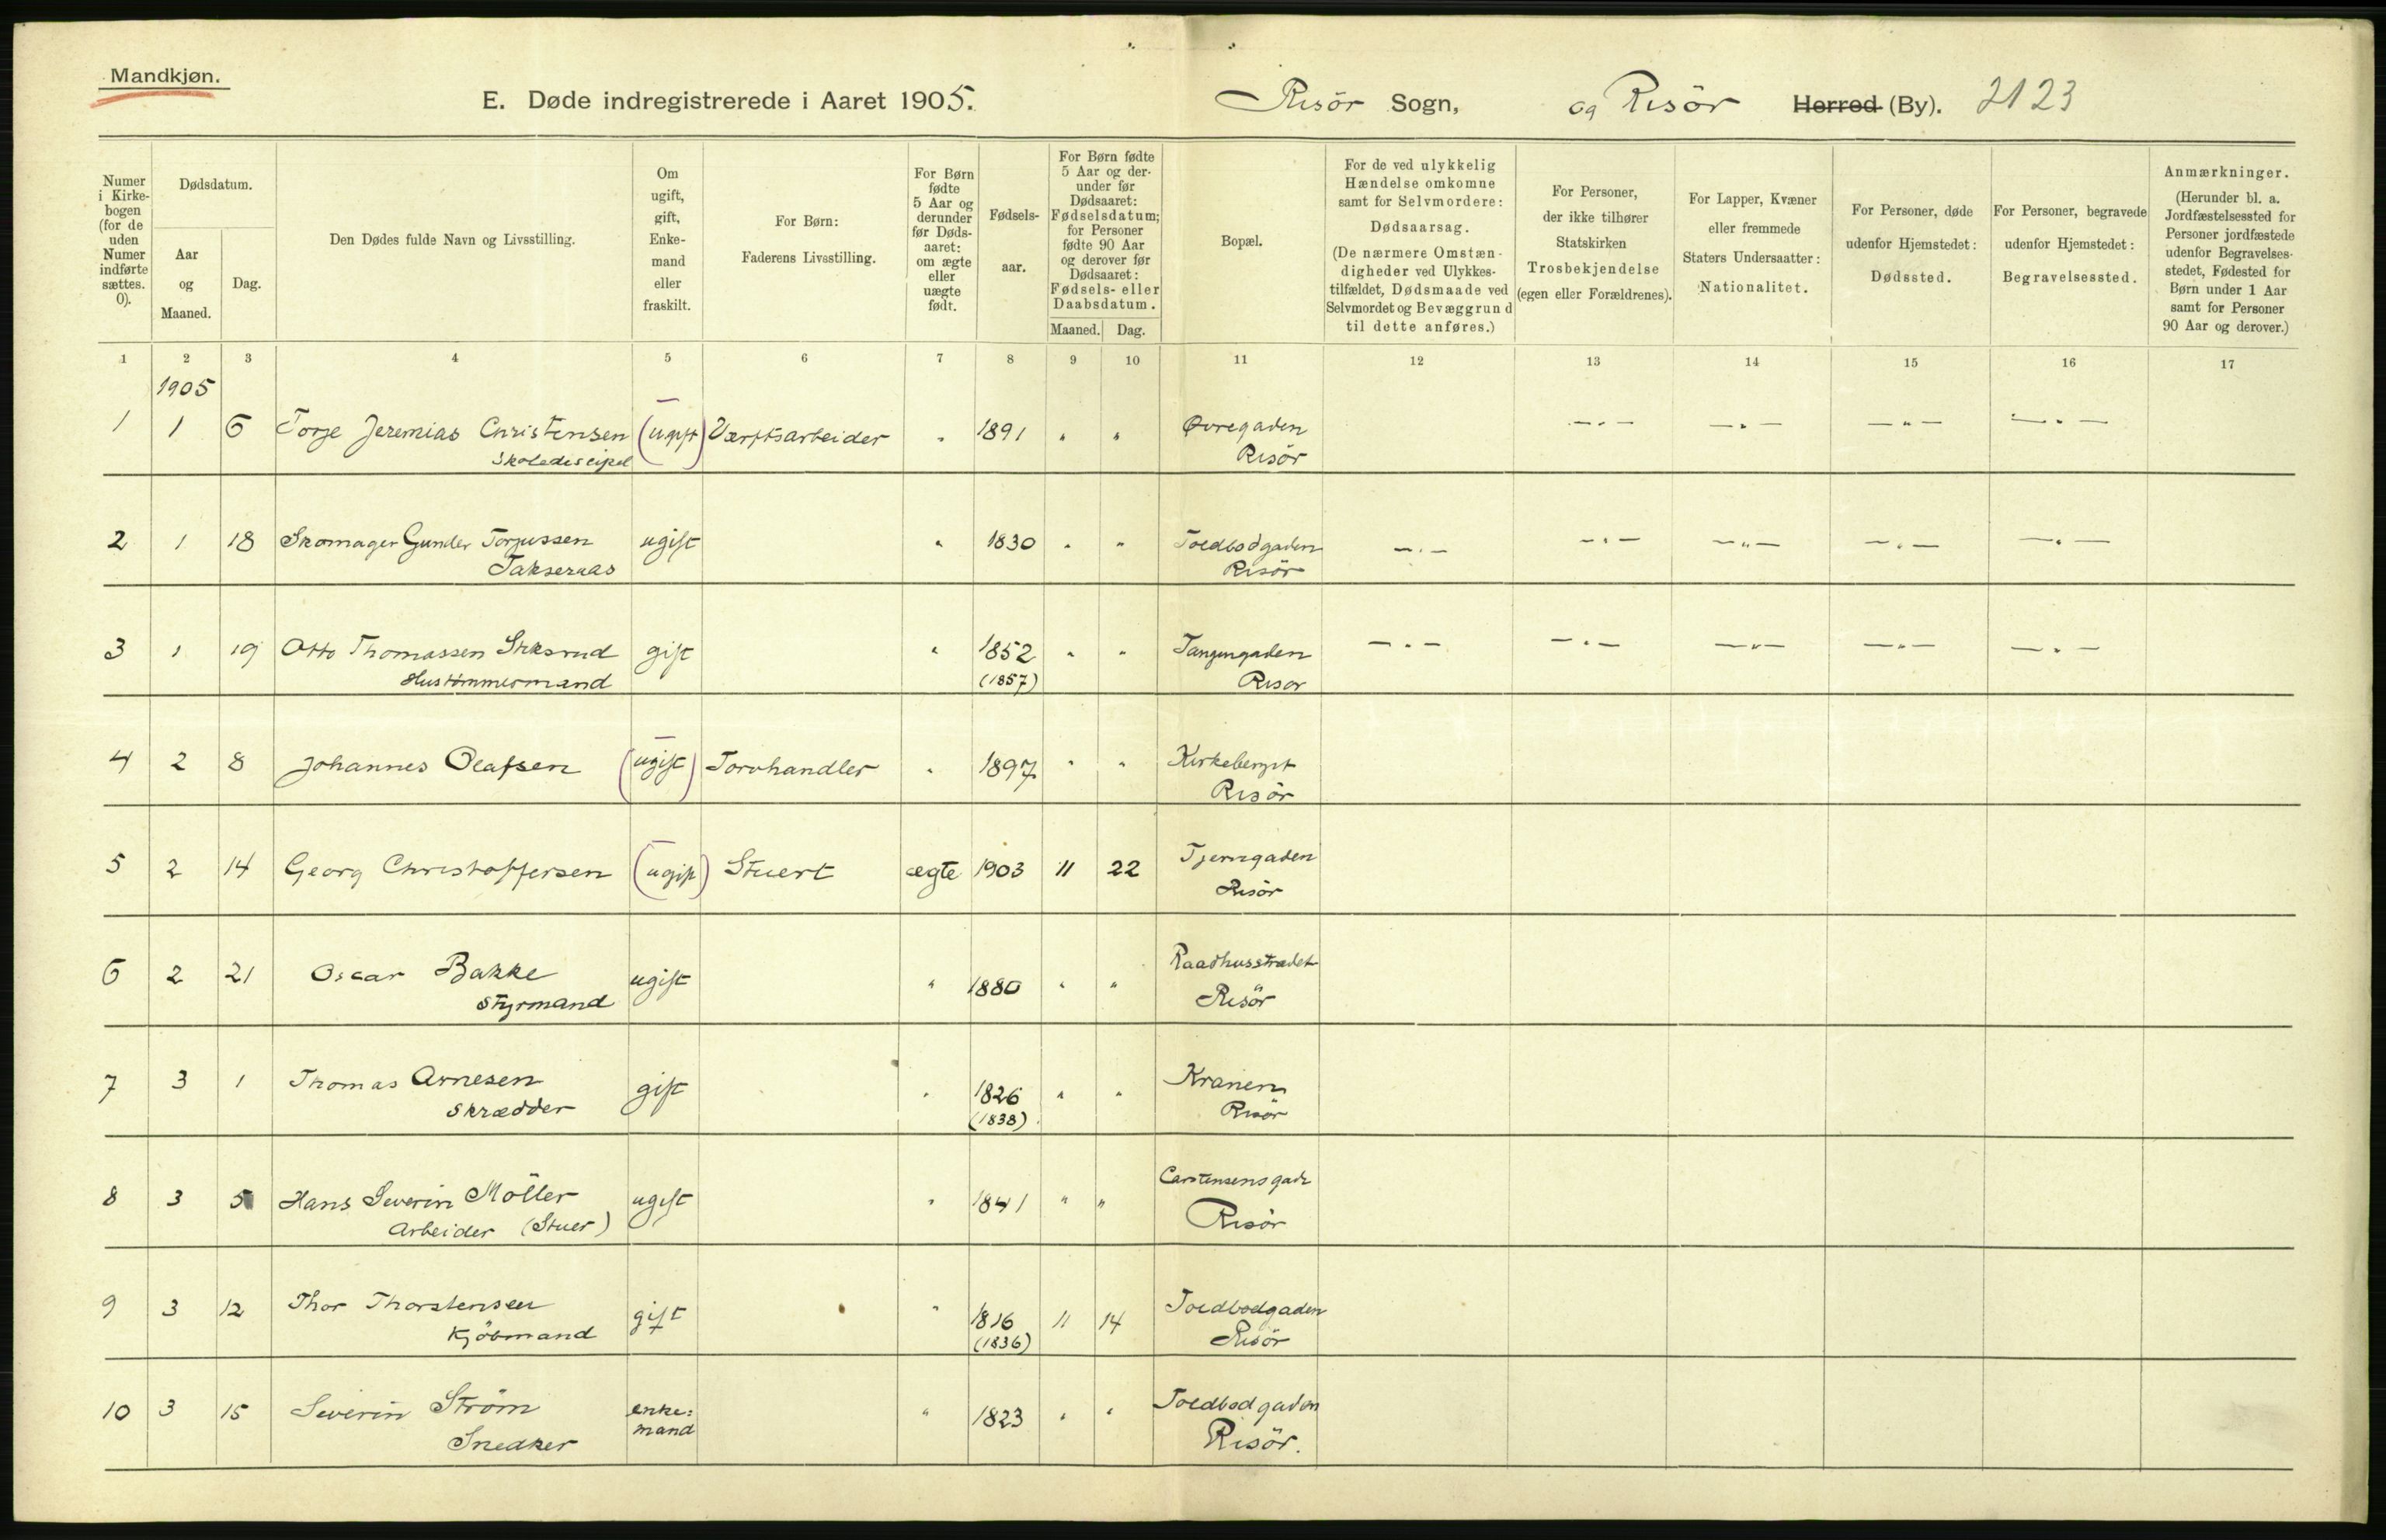 Mandkjøn.
E. Døde indregistrerede i Aaret 1905. Risör Sogn, og Risör Herred (By). 2123
Numer i Kirkebogen (for de uden Numer indførte sættes. 0).
Dødsdatum.
Aar og Maaned.
Dag.
Den Dødes fulde Navn og Livsstilling.
Om ugift, gift, Enkemand eller fraskilt.
For Børn:
Faderens Livsstilling.
For Børn fødte 5 Aar og derunder før Dødsaaret: om ægte eller uægte født.
Fødselsaar.
For Børn fødte 5 Aar og derunder før Dødsaaret: Fødselsdatum; for Personer fødte 90 Aar og derover før Dødsaaret: Fødsels- eller Daabsdatum.
Maaned. Dag.
Bopæl.
For de ved ulykkelig Hændelse omkomne samt for Selvmordere:
Dødsaarsag.
(De nærmere Omstændigheder ved Ulykkestilfældet, Dødsmaade ved Selvmordet og Bevæggrund til dette anføres.)
For Personer, der ikke tilhører Statskirken
Trosbekjendelse
(egen eller Forældrenes).
For Lapper, Kvæner eller fremmede Staters Undersaatter:
Nationalitet.
For Personer, døde udenfor Hjemstedet:
Dødssted.
For Personer, begravede udenfor Hjemstedet:
Begravelsessted.
Anmærkninger.
(Herunder bl. a. Jordfæstelsessted for Personer jordfæstede udenfor Begravelsesstedet, Fødested for Børn under 1 Aar samt for Personer 90 Aar og derover.)
1 2 3 4 5 6 7 8 9 10 11 12 13 14 15 16 17
1905
1 1 6 Torje Jeremias Christensen (ugift) Værftsarbeider " 1891 " " Øvregaden —"— —"— —"— —"—
Skolediscipel Risör
2 1 18 Skomager Gunder Torjussen ugift " 1830 " " Toldbodgaden —"— —"— —"— —"— —"—
Risör
3 1 19 Otto Thomassen gift " 1852 " " Tangengaden —"— —"— —"— —"— —"—
Hustømmermand (1857) Risør
4 2 8 Johannes Olafsen (ugift) Torvhandler " 1897 " " Kirkeberget
Risör
5 2 14 Georg Christoffersen (ugift) Stuert ægte 1903 11 22 Tjerngaden
Risör
6 2 21 Oscar Bakke ugift " 1880 " " Raadhusstrædet
Styrmand Risör
7 3 1 Thomas Arnesen gift " 1826 " " Kranen
Skrædder (1838) Risör
8 3 5 Hans Severin Möller ugift " 1841 " " Carstensensgade
Arbeider (Stuer) Risör
9 3 12 Thor Thorstensen gift " 1816 11 14 Toldbodgaden
Kjöbmand (1836) Risör
10 3 15 Severin Ström enke= " 1823 " " Toldbodgaden
Snedker mand Risör.